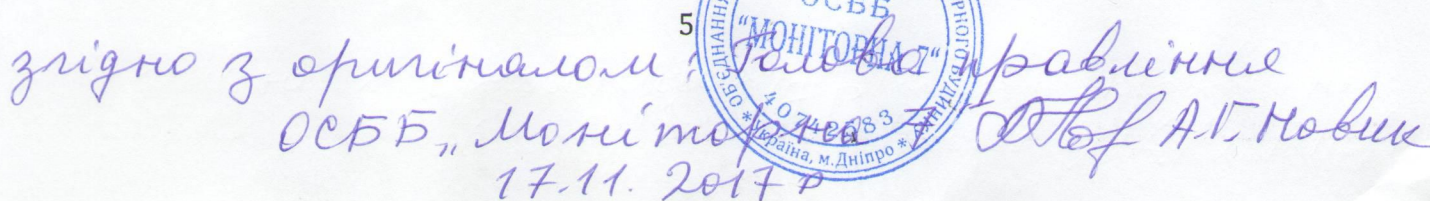 5
згідно з оригіналом: Голова правління
ОСББ „Моніторна 7" А.Г. Новик
17.11. 2017 р
ОСББ
"МОНІТОРНА 7"
ОБ'ЄДНАННЯ
РНОГО БУДИНКУ
* Україна, м.Дніпро *